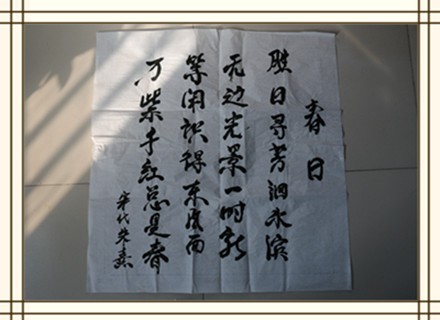 春日
胜日寻芳泗水滨
无边光景一时新
等闲识得东风面
万紫千红总是春
宋代朱熹